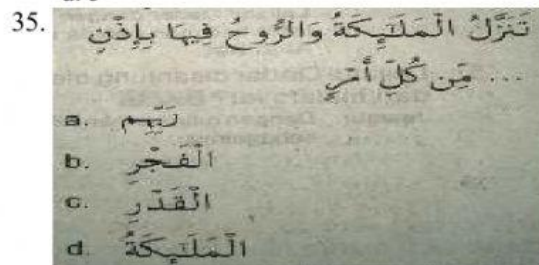 35. تَنَزَّلُ الْمَلَـٰٓئِكَةُ وَالرُّوحُ فِيهَا بِإِذْنِ
... مِّن كُلِّ أَمْرٍ
a. رَبِّهِم
b. الْفَجْرِ
c. الْقَدْرِ
d. الْمَلَـٰٓئِكَةُ